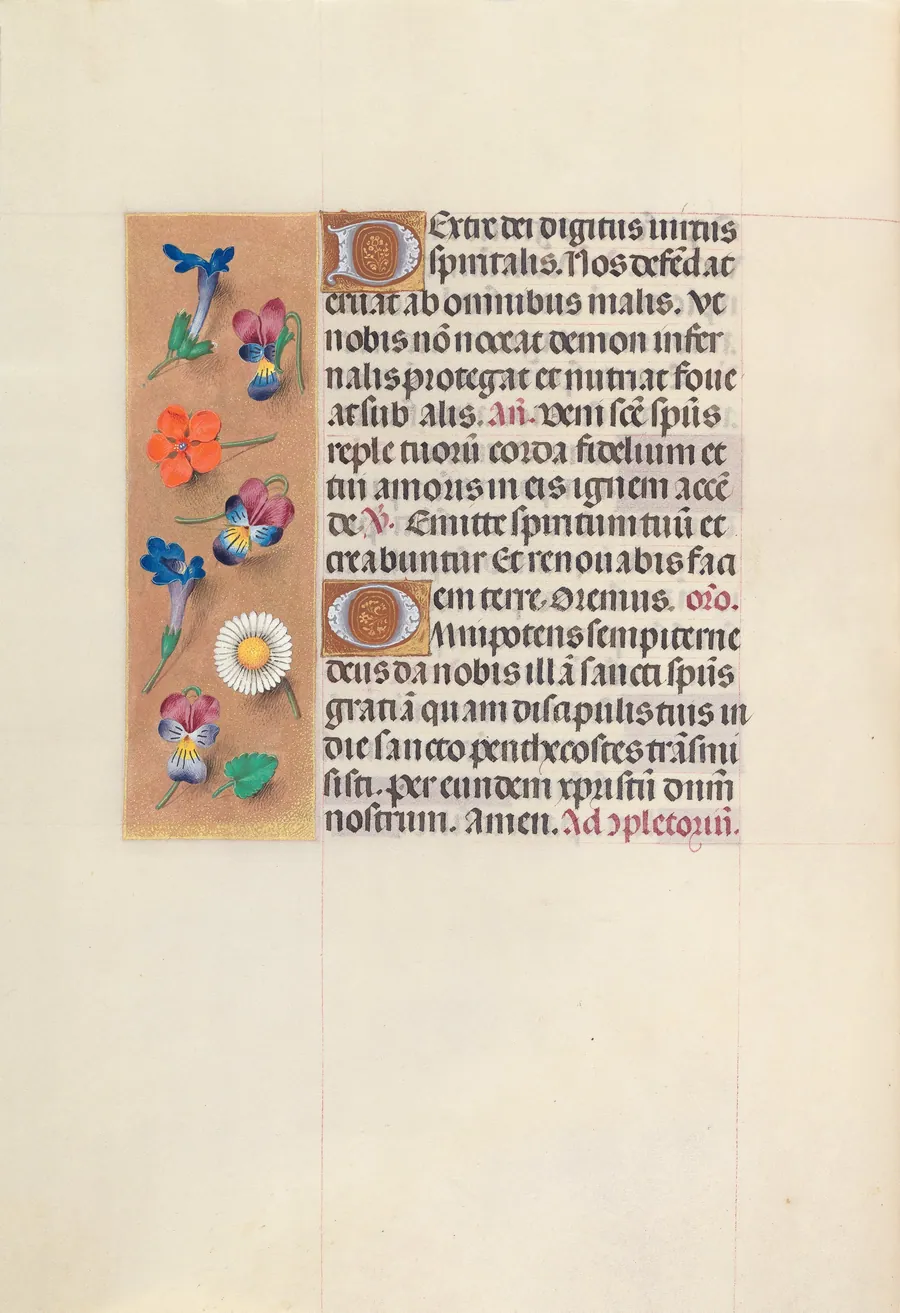 DExtre dei digitus uirtus
spiritalis. Nos defēdat
eruat ab omnibus malis. vt
nobis nō noceat demon infer
nalis protegat et nutriat foue
at sub alis. Añ. Veni scē spūs
reple tuorū corda fidelium et
tui amoris in eis ignem accē
de ℣. Emitte spiritum tuū et
creabuntur Et renouabis faci
em terre. Oremus. orō.
OMnipotens sempiterne
deus da nobis illā sancti spūs
gratiā quam discipulis tuis in
die sancto penthecostes trāsmi
sisti. per eundem xpristū dnm̄
nostrum. Amen. Ad ↄpletoriū.